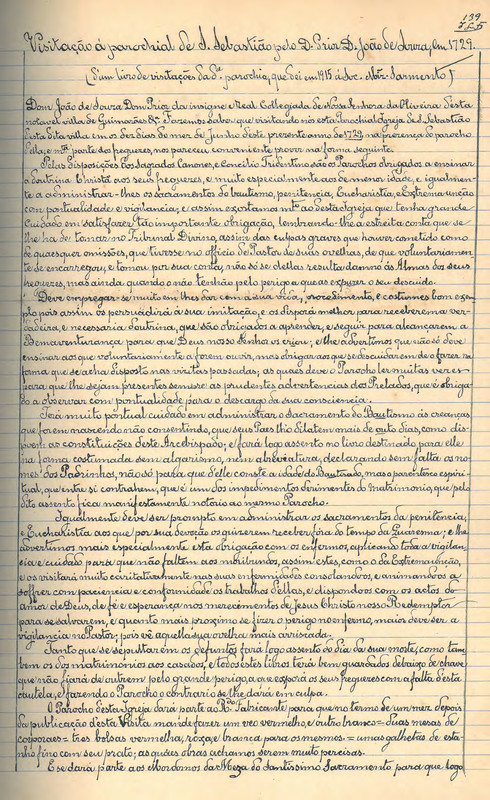 139
Visitação á parochial de S. Sebastião pelo D. Prior D. João de Sousa, em 1729.
(Num livro de visitações da d.ª parochia, que dei em 1915 á Soc. Mar. Sarmento)
Dom João de Sousa Dom Prior da insigne e Real Collegiada de Nossa Senhora da Oliveira desta
notavel villa de Guimarães &ª. Fazemos saber que visitando nós esta Parochial Igreja de S. Sebastião
desta dita villa em os dias do mez de Junho deste presente anno de 1729 na presença do parocho
della, e m.ta parte dos freguezes, nos pareceu conveniente prover na forma seguinte.
Pelas disposições dos Sagrados Canones, e Concilio Tridentino são os Parochos obrigados a ensinar
a doutrina Christã aos seus freguezes, e muito especialmente aos de menor idade, e igualmen-
te a administrar-lhes os sacramentos do bautismo, penitencia, Eucharistia, e Extrema unção
com pontualidade e vigilancia; e assim exortamos m.to ao desta Igreja que tenha grande
cuidado em satisfazer tão importante obrigação, lembrando-lhe a estreita conta que se
lhe ha de tomar no Tribunal Divino, assim das culpas graves que houver cometido como
de quaesquer omissões, que tivesse no officio de Pastor de suas ovelhas, de que voluntariamen-
te se encarregou, e tomou por sua conta, não só se dellas resulta damno ás Almas dos seus
freguezes, mas ainda quando o não tenhão pelo perigo a que as expuzer o seu descuido.
Deve empregar-se muito em lhes dar com a sua vida, procedimento, e costumes bom exem-
plo pois assim os persuadirá á sua imitação, e os disporá melhor para receberem a ver-
dadeira, e necessaria doutrina, que são obrigados a aprender, e seguir para alcançarem a
Benaventurança para que Deus nosso Senhor os criou; e lhe advertimos que não só deve
ensinar aos que voluntariamente a forem ouvir, mas obrigar aos que se descuidarem de o fazer na
forma que se acha disposto nas visitas passadas; as quaes deve o Parocho ler muitas vezes
para que lhe sejam presentes sempre as prudentes advertencias dos Prelados, que é obriga-
do a observar com pontualidade para o descargo da sua consciencia.
Terá muito pontual cuidado em administrar o sacramento do Bautismo ás crianças
que forem nascendo não consentindo, que seus Pais lho dilatem mais de outo dias, como dis-
poem as constituições deste Arcebispado; e fará logo assento no livro destinado para elle
na forma costumada sem algarismo, nem abreviatura, declarando sem falta os no-
mes dos Padrinhos, não só para que delle conste a idade do Bautizado, mas o parentesco espiri-
tual, que entre si contrahem, que é um dos impedimentos derimentes do matrimonio, que pelo
dito assento fica manifestamente notorio ao mesmo Parocho.
Igualmente deve ser prompto em administrar os sacramentos da penitencia,
e Eucharistia aos que por sua devoção os quizerem receber fóra do tempo da Quaresma; e lhe
advertimos mais especialmente esta obrigação com os enfermos, aplicando toda a vigilan-
cia e cuidado para que não faltem aos moribundos, assim estes, como o da Extrema unção,
e os visitará muito caritativamente nas suas enfermidades consolando-os, e animando-os a
soffrer com paciencia e conformidade os trabalhos dellas, e dispondo-os com os actos do
amor de Deus, de fé e esperança nos merecimentos de Jesus Christo nosso Redemptor
para se salvarem, e quanto mais proximo se fizer o perigo no enfermo, maior deve ser a
vigilancia no Pastor; pois vê aquella sua ovelha mais arriscada.
Tanto que se sepultarem os defuntos fará logo assento do dia da sua morte, como tam-
bem os dos matrimonios aos casados, e todos estes livros terá bem guardados debaixo de chave
que não fiará de outrem pelo grande perigo, a que exporá os seus freguezes com a falta desta
cautela, e fazendo o Parocho o contrario se lhe dará em culpa.
O Parocho desta Igreja dará parte ao R.do Fabricante para que no termo de um mez depois
da publicação d'esta Visita mande fazer um veo vermelho, e outro branco = duas mesas de
corporaes = tres bolsas vermelha, rôxa, e branca para os mesmos. = umas galhetas de esta-
nho fino com seu prato; as quaes obras achamos serem muito percisas.
E se dará parte aos Mordomos da Meza do Santissimo Sacramento para que logo